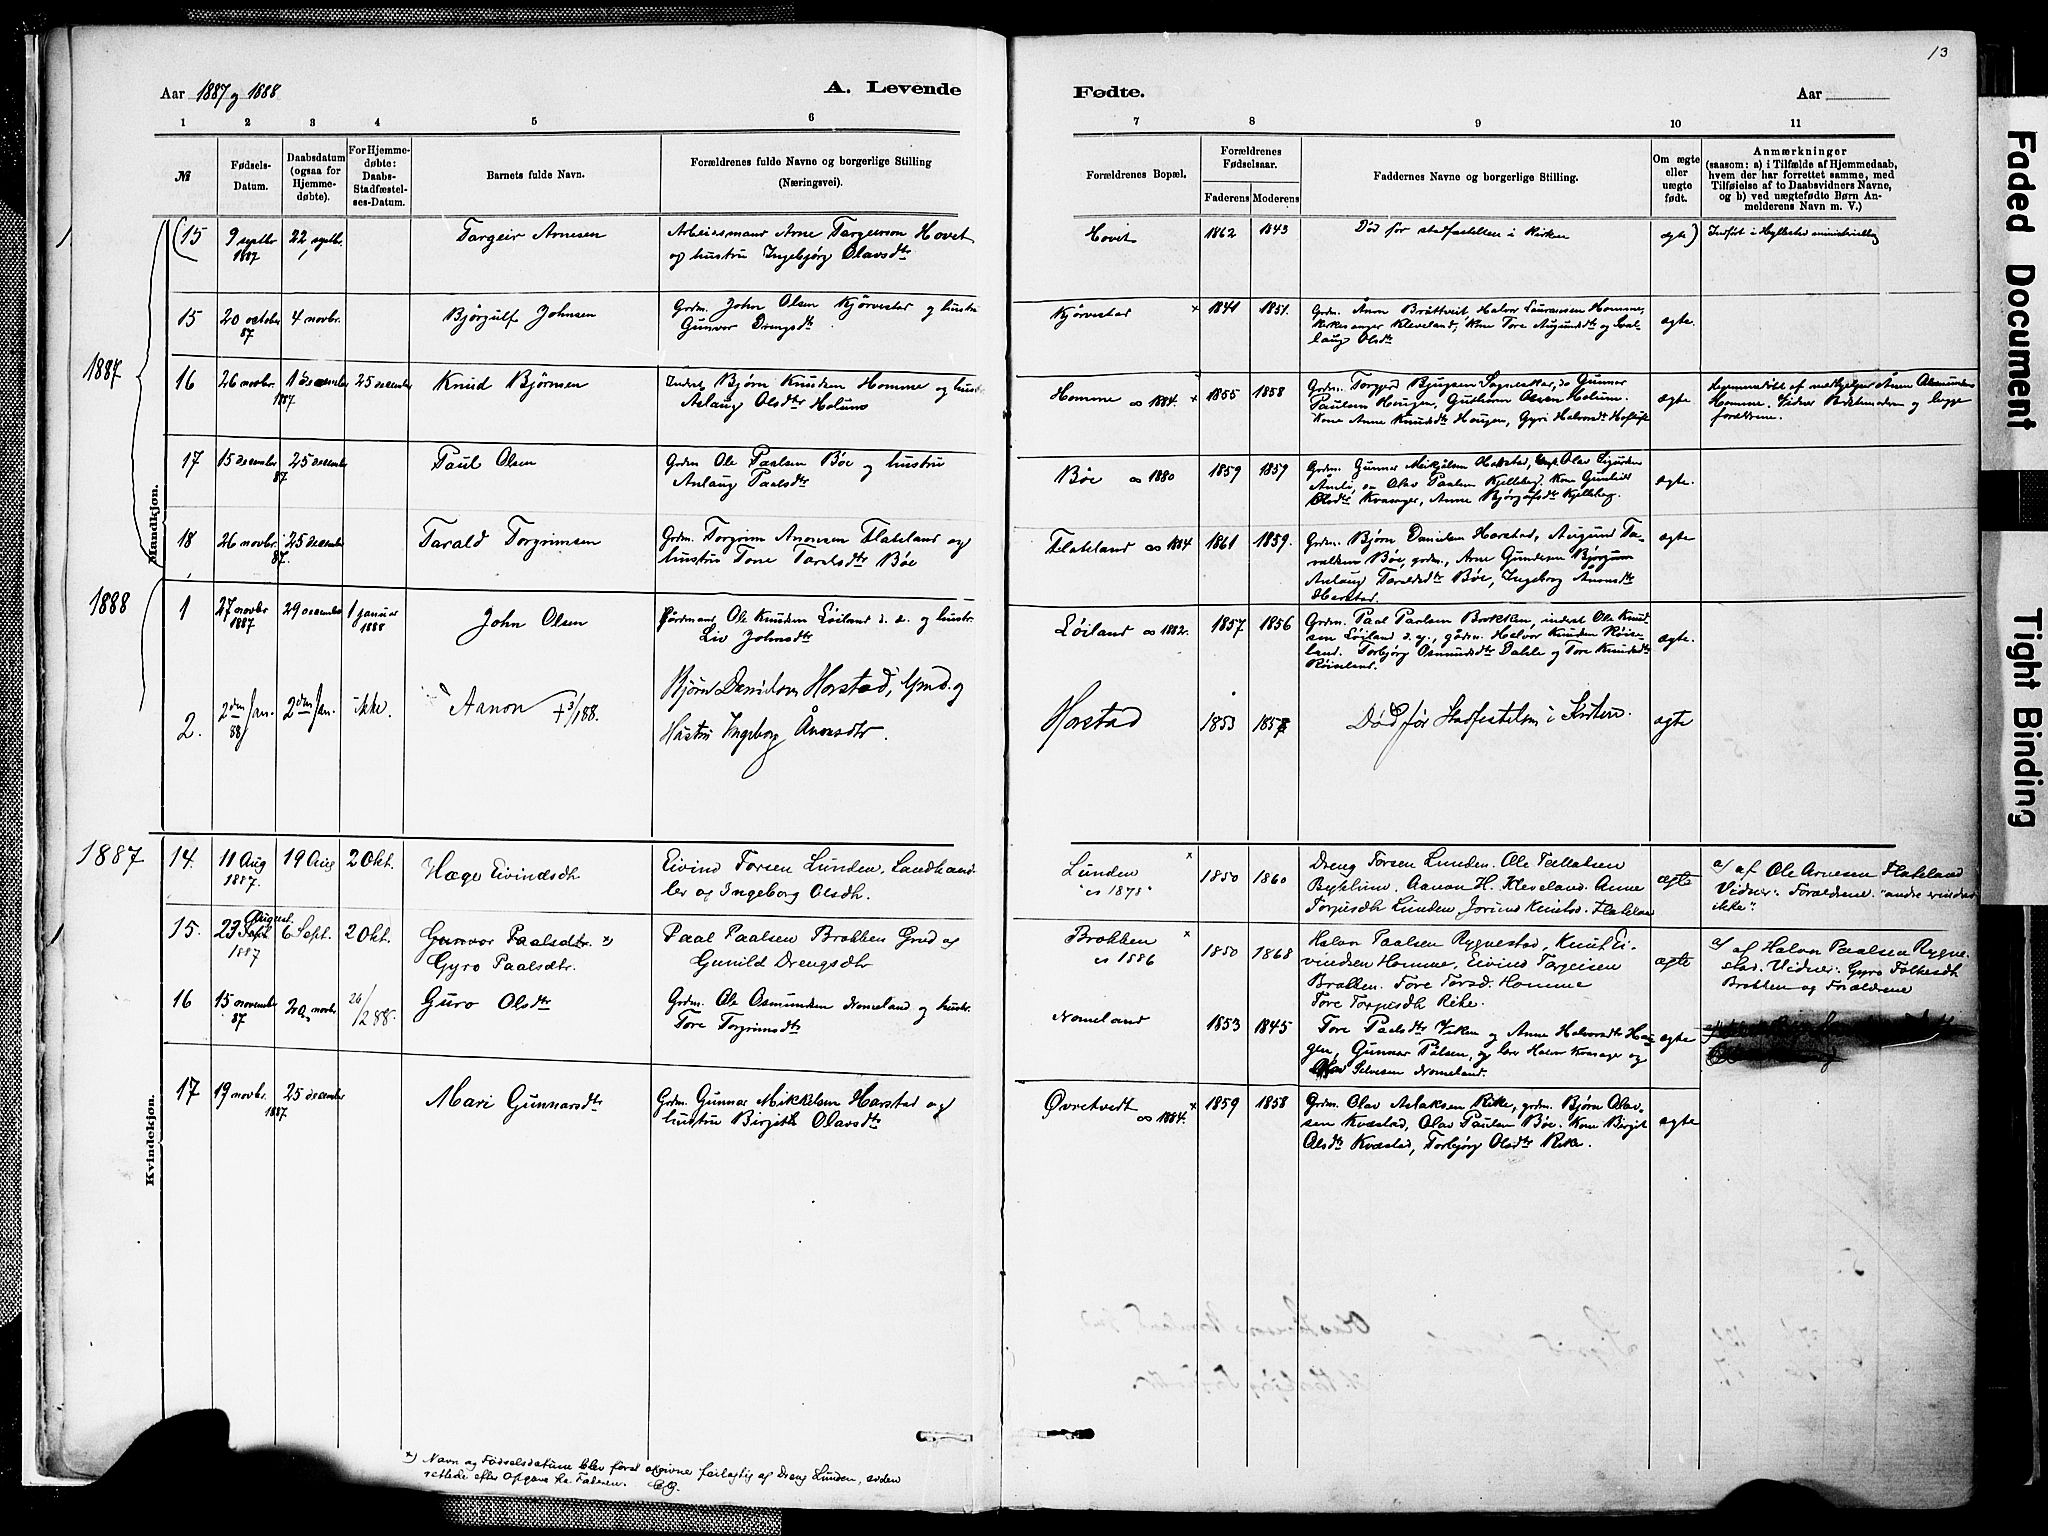 13
Aar 1887 og 1888
A. Levende
Fødte.
Aar
1 2 3 4 5 6 7 8 9 10 11
№
Fødsels-
Datum.
Daabsdatum
(ogsaa for
Hjemme-
døbte).
For Hjemme-
døbte:
Daabs-
Stadfæstel-
ses-Datum.
Barnets fulde Navn.
Forældrenes fulde Navne og borgerlige Stilling
(Næringsvei).
Forældrenes Bopæl.
Forældrenes
Fødselsaar.
Faderens
Moderens
Faddernes Navne og borgerlige Stilling.
Om ægte
eller
uægte
født.
Anmærkninger
(saasom: a) i Tilfælde af Hjemmedaab,
hvem der har forrettet samme, med
Tilføielse af to Daabsvidners Navne,
og b) ved uægtefødte Børn An-
melderens Navn m. V.)
Mandkjøn.
1887
(15
9 septbr
1887
22 septbr.
Targeir Arnesen
Arbeidsmand Arne Targeirson Hovet
og hustru Ingebjørg Olavsdtr
Hovet
1862
1843
Død før stadfæstelsen i kirken
ægte)
Indført i Hyllestad ministerialbog
15
20 october
87
4 novbr.
Bjørgulf Johnsen
Grdm. John Olsen Kjörvestad og hustru
Gunvor Drengsdtr
Kjörvestad
x
1841
1851.
Grdm. Ånon Brottveit, Halvor Lauransen Homme,
Kirkesanger Kleveland, Kone Tore Augundsdtr og
laug Olsdtr
ægte.
16
26 novbr.
1887
1 december
25 december
Knud Björnsen
Inderst Bjørn Knudsen Homme og hustr
Aslaug Olsdtr Holum
Homme ∞ 1884. x
1855
1858
Grdm. Torgjerd Bjugsen , do Gunnar
Paulsen Haugen, Guthorm Olsen Holum.
Kone Anne Knudsdtr Haugen, Gyri Halvorsdtr
ægte
Hjemmedøbt af medhjelper Ånon Osmundsen
Homme. Vidner Bedstemoderen og begge
forældrene.
17
15 december
87
25 december
Paul Olsen
Grdm Ole Paalsen Böe og hustru
Aslaug Paalsdtr
Böe ∞ 1880
1859
1859
Grdm. Gunnar Mikjålsen Harstad, Ungk. Olav Sigurdsen
, do Olav Paalsen Kjelleberg. Kone Gunhild
Olsdtr Kvasager, Anne Bjørgufsdtr Kjelleberg.
ægte.
18
26 novbr.
87.
25 december
Tarald Torgrimsen
Grdm. Torgrim Anonsen Flateland og
hustru Tone Taraldsdtr Böe
Flateland ∞ 1884
1861
1859.
Grdm. Bjørn Danielsen Harstad, Augund Ta-
raldsen Böe, grdm., Arne Gundersen Björgum
Aslaug Taraldsdtr Böe, Ingeborg Ånonsdtr
Harstad.
ægte
1888
1
27 novbr
1887
29 december
1 januar
1888
John Olsen
Gårdmand Ole Knudsen Löiland d. e. og hustr.
Liv Johnsdtr
Löiland ∞ 1882.
1857
1856
Grdm. Paal Paalsen Brokken, inderst Ole Knud-
sen Löiland d. y., gårdm. Halvor Knudsen Röise-
land. Torbjörg Osmundsdtr Dahle og Tore Knudsdtr
Röiseland.
ægte.
2.
2den Jan.
88
2den Jan.
ikke.
Aanon +3/1 88.
Bjørn Danielsen Horstad, Grmd. og
Hustru Ingeborg Ånonsdtr.
Horstad
1853
1857
Død før Stadfæstelsen i Kirken.
ægte
1887
Kvindekjøn.
14.
11 Aug
1887.
19 Aug
2 Okt.
Hæge Eivindsdtr
Eivind Torsen Lunden, Landhand-
ler og Ingeborg Olsdtr.
Lunden x
"∞ 1878"
1850
1860
Dreng Torsen Lunden. Ole Tallaksen
Bjuglum. Aanon H. Kleveland. Anne
Torjusdtr Lunden Jorund Knutsd. Flateland
ægte
a) af Ole Arnesen Flateland
Vidner: Forældrene "andre vindes
ikke".
15.
August.
23 Sept.
1887
6 Sept.
2 Okt.
Gunvor Paalsdtr. x)
Gyro Paalsdtr.
Paal Paalsen Brokken Grmd og
Gunild Drengsdtr
Brokken x
∞ 1886
1850
1868
Halvor Paalsen Rygnestad, Knut Ei-
vindsen Homme, Eivind Torgeisen
Brokken. Tore Torsd. Homme
Tore Torjusdtr Rike.
ægte
a) af Halvor Paalsen Rygne-
stad. Vidner: Gyro Folkesdtr
Brokken og Forældrene
16
15 november
87
20 novbr.
26/2 88.
Guro Olsdtr
Grdm. Ole Osmundsen Nomeland og hustr.
Tore Torgrimsdtr
Nomeland
1853
1845
Tore Paalsdtr Viken og Anne Halvorsdtr Hau-
gen, Gunnar Pålsen, og lærer Halvor Kvasager og
Olav Nomeland.
ægte
17
19 novbr.
1887
25 december
Mari Gunnarsdtr
Grdm. Gunnar Mikkelsen Harstad og
hustru Birgith Olavsdtr
Øvretvedt x
∞ 1884.
1859
1858
Grdm. Olav Aslaksen Rike, grdm. Bjørn Olav-
sen Kvæstad, Olav Paulsen Böe. Kone Birgit
Olsdtr Kvæstad, Torbjørg Olsdtr Rike.
ægte
x) Navn og Fødselsdatum blev først opgivne feilagtig af Dreng Lunden, siden
rettede efter Opgave fra Faderen.
Faded Document
Tight Binding